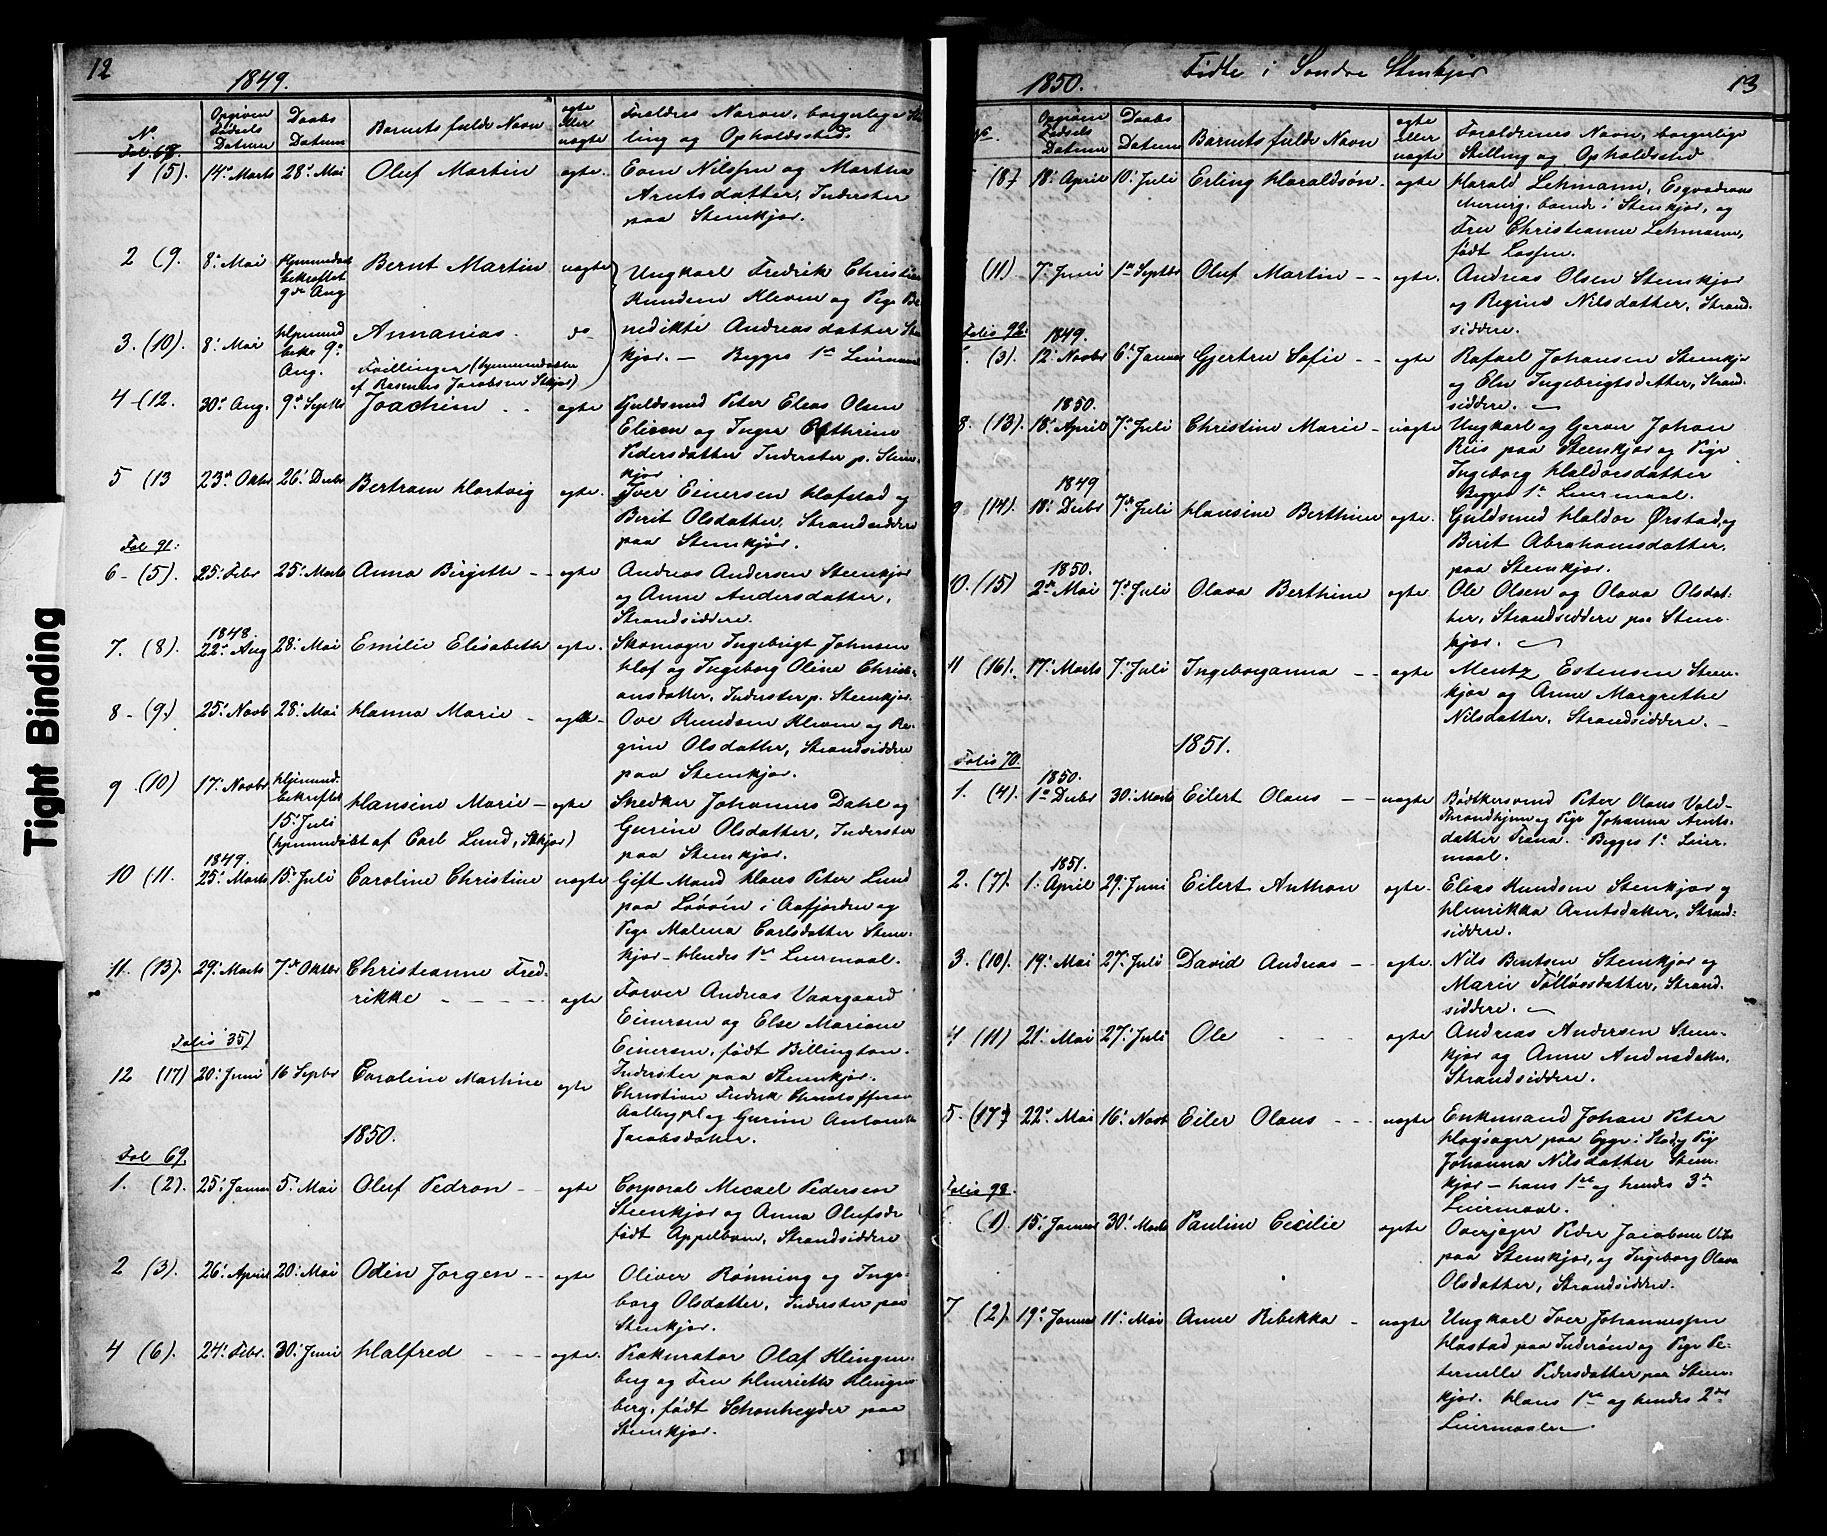 12
1849.
No
Opgiven Fødsels Datum
Daabs Datum
Barnets fulde Navn
ægte eller uægte
Forældres Navn, borgerlige Stilling og Opholdssted.
Fol. 68.
1 (5). 14de Marts 28de Mai Oluf Martin ægte. Even Nilssen og Martha
Arntsdatter, Inderster
paa Stenkjør.
2 (9. 8de Mai Hjemmedøbt bekræftet 9de Aug Bernt Martin uægte Ungkarl Fredrik Christian
Knudsen Kleven og Pige Be-
3. (10). 8de Mai Hjemmed. bekr. 9de Aug. Annanias. do nedikte Andreasdatter Sten-
kjør. — Begges 1ste Leiermaal
Tvillinger (hjemmedøbte
af Rasmus Jacobsen Stkjør)
4 - (12. 30de Aug. 9de Septbr Joachim - - ægte Guldsmed Peter Elias Olsen
Elisen og Inger Cathrine
Pedersdatter Inderster p. Sten-
kjør
5 (13 23de Oktbr 26de Decbr Bertram Hartvig ægte. Iver Einersen Hafstad og
Berit Olsdatter, Strandsiddere
paa Stenkjør.
Fol 91.
6 - (5). 25de Febr 25de Marts Anna Birgitte - - ægte Andreas Andersen Steenkjør
og Anne Andersdatter,
Strandsiddere.
1848.
7. (8). 22de Aug 28de Mai Emilie Elisabeth ægte. Skomager Ingebrigt Johnsen
Hof og Ingeborg Oline Christi-
ansdatter, Inderster p. Steenkjør.
8 - (9.) 25de Novb 28de Mai Hanna Marie - ægte - Ove Knudsen Kleven og Re-
gine Olsdatter, Strandsiddere
paa Stenkjør.
9 (10) 17de Novbr Hjemmed. bekræftet 15de Juli Hansine Marie - ægte Snedker Johannes Dahl og
Gurine Olsdatter, Inderster
paa Stenkjør.
(hjemmedøbt af Carl Lund, Stkjør)
1849.
10 (11. 25de Marts 15de Juli Caroline Christine uægte Gift Mand Hans Peter Lund
paa Løvøen i Aafjorden og
Pige Malena Carlsdatter Sten-
kjør - hendes 1ste Leiermaal.
11. (13). 29de Marts 7de Oktbr Christianne Fred-
rikke - - - - ægte Farver Andreas Vaargaard
Einersen og Else Mariane
Einersen, født Billington.
Inderster paa Stenkjør.
Folio 35)
12 (17) 20de Juni 16 Septbr Caroline Martine ægte Christian Fredrik Christoffersen
Aalbergpl og Gurine Antonette
Jacobsdatter.
1850.
Fol 69.
1. (2). 25de Januar 5te Mai Oluf Pedron - - ægte Corporal Micael Pedersen
Steenkjør og Anna Olufsdr
født Appelbom, Strandsiddere
2 (3). 26de April 20de Mai Odin Jørgen - - ægte Oliver Rønning og Inge-
borg Olsdatter, Inderster paa
Stenkjør.
4 (6). 24de Febr. 30de Juni Halfred - - - ægte. Prokurator Olaf Klingen-
berg og Fru Henriette Klingen-
berg, født Schønheyder paa
Stenkjør.
11
1850.
Fødte i Søndre Stenkjør
13
Opgiven Fødsels Datum
Daabs Datum
Barnets fulde Navn
ægte eller uægte
Forældrenes Navn, borgerlige Stilling og Opholdssted
(8) 18de April 10de Juli Erling Haraldsøn - ægte Harald Lehmann, Esqvadrons
boende i Stenkjør, og
Fru Christianne Lehmann,
født Lossen.
(11) 7de Juni 1ste Septbr Oluf Martin - - ægte. Andreas Olsen Stenkjør
og Regine Nilsdatter, Strand-
siddere.
Folio 92.
1849.
(3) 12te Novbr 6te Januar Gjertru Sofie - - ægte Rafael Johansen Steinkjr
og Else Ingebrigtsdatter, Strand-
siddere. —
1850.
8. (13). 18de April 7de Juli Christine Marie - uægte Ungkarl og Garver Johan
Riis paa Steenkjør og Pige
Ingeborg Haldorsdatter
Begges 1ste Leiermaal.
1849
9 (14). 18de Decbr 7de Juli Hansine Berthine ægte. Guldsmed Haldor Ørstad og
Berit Abrahamsdatter,
paa Stenkjør.
1850.
10. (15) 2den Mai 7de Juli Olava Berthine ægte. Ole Olsen og Olava Olsdat-
ter, Strandsiddere paa Sten-
kjør. —
11 (16). 17de Marts 7de Juli Ingeborganna - - ægte Mentz Estensen Steen-
kjør og Anne Margrethe
Nilsdatter. Strandsiddere. —
1851.
Folio 70.
1850.
1. (4). 1ste Decbr 30de Marts Eilert Olaus - - uægte Bødtkersvend Peter Olaus Vold-
Throndhjem og Pige Johanna Arnts-
datter Trana. Begges 1ste Leier-
maal.
1851.
2. (7). 1ste April 29de Juni Eilert Anthon ægte. Elias Knudsen Stenkjør og
Henrikka Arntsdatter, Strand-
siddere.
3. (10). 19de Mai 27de Juli David Andreas - - ægte. Nils Bentsen Stenkjør og
Marie Tølløfsdatter, Strand-
siddere. —
4 (11) 21de Mai 27de Juli Ole - - ægte Andreas Andersen Steen-
kjør og Anne Andersdatter,
Strandsiddere.
5. (17.) 22de Mai 16de Novb Eiler Olaus - - uægte Enkemand Johan Peter
Hagsager paa Egge i Stod og Pige
Johanna Nilsdatter Steen-
kjør - hans 1ste og hendes 3de
Leiermaal.
Folio 93.
(1) 15de Januar 30de Marts Pauline Cecilie ægte Overjæger Peder Jacobsen
paa Stenkjør, og Ingeborg Olava
Olsdatter, Strandsiddere.
7. (2). 19de Januar 11te Mai Anne Rebekka - uægte Ungkarl Iver Johannessen
Hastad paa Inderøen og Pige Pe-
ternelle Pedersdatter paa Steen-
kjør. Hans 1ste og hendes 2det
Leiermaal.
Tight Binding